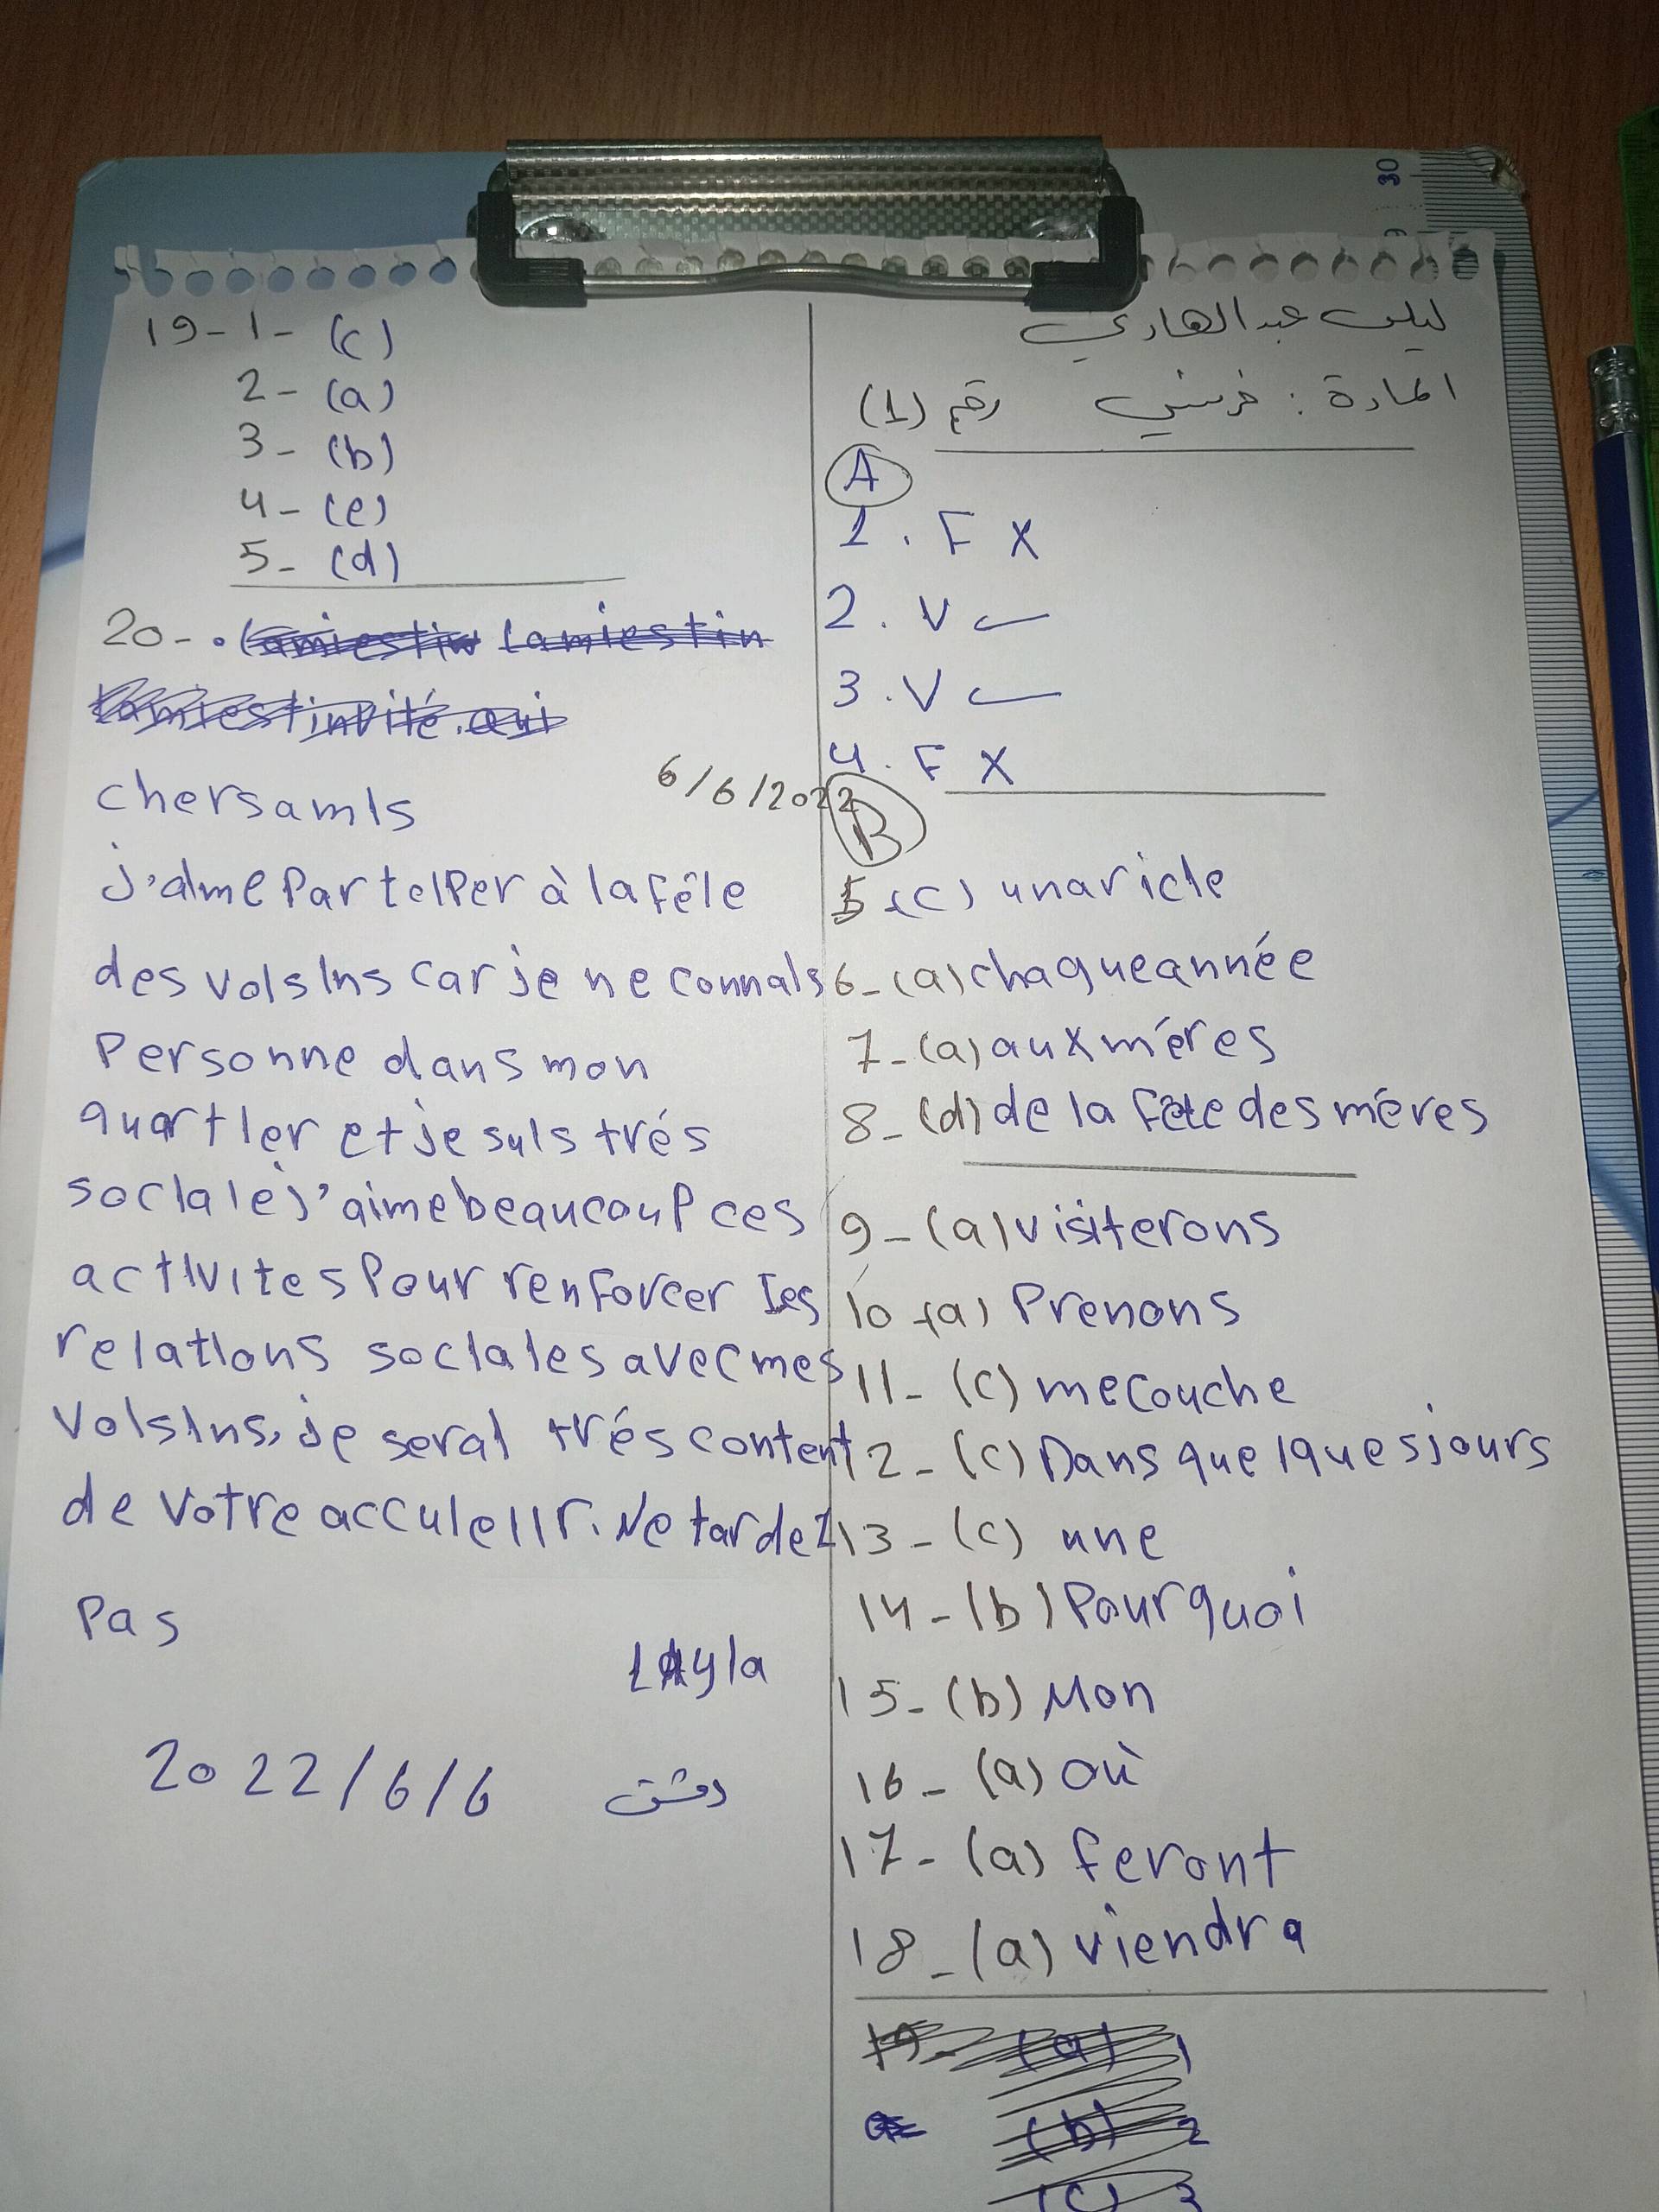 ليلى عبد الهادي
المادة : فرنسي رقم (1)
A
1. F X
2. V
3. V
4. F X
B
5 (c) unaricle
6-(a) chaqueannée
7-(a) auxméres
8-(d) de la fête des méres
9-(a) visiterons
10-(a) Prenons
11-(c) mecouche
12-(c) Dans quelquesjours
13-(c) une
14-(b) Pourquoi
15-(b) Mon
16-(a) où
17-(a) feront
18-(a) viendra
19- (a) 1
(b) 2
(c) 3
19-1- (c)
2- (a)
3- (b)
4- (e)
5- (d)
20-
6/6/2022
chersamIs
j'aIme ParteIPer à la fêle
des voIsIns car je ne connaIs
Personne dans mon
quartIer et je suIs trés
socIale j'aime beaucoup ces
actIvItes Pour renforcer Ies
relatIons socIales avec mes
VoIsIns, je seraI trés content
de Votre accuIeIIr. Ne tardez
Pas
LAyla
2022/6/6 دمشق